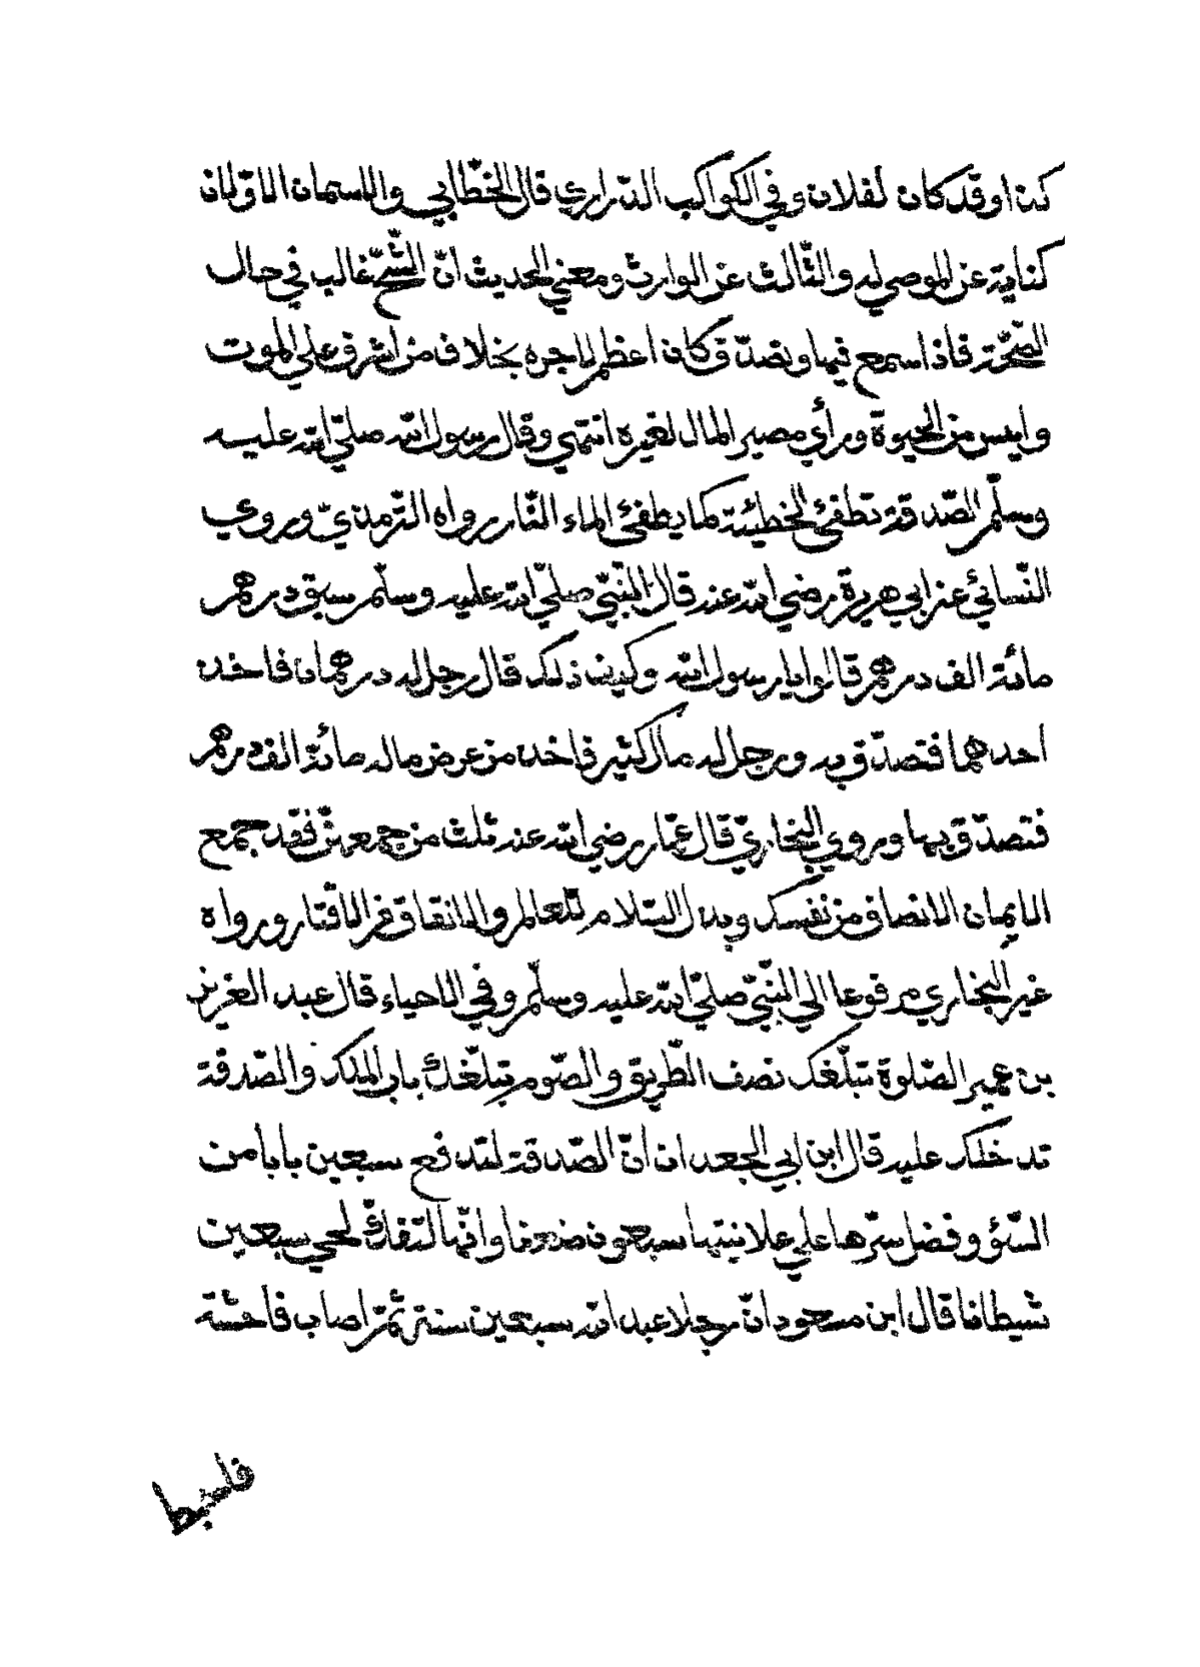 كذا وقد كان لفلان وفي الكواكب الدراري قال الخطّابي والاسمان الاوّلان
كناية عن الموصي له والثّالث عن الوارث ومعني الحديث انّ الشّحّ غالب في حال
الصّحّة فاذا سمع فيها وتصدّق كان اعظم لاجره بخلاف من اشرف علي الموت
وايس من الحيوة ورأي مصير المال لغيره انتهي وقال رسول الله صلّي الله عليه
وسلّم الصّدقة تطفئ الخطيئة كما يطفئ الماء النّار رواه التّرمذيّ وروي
النّسائي عن ابي هريرة رضي الله عنه قال النّبيّ صلّي الله عليه وسلّم سبق درهم
مائة الف درهم قالوا يا رسول الله وكيف ذلك قال رجل له درهمان فاخذ
احدهما فتصدّق به ورجل له مال كثير فاخذ من عرض ماله مائة الف درهم
فتصدّق بها وروي البخاريّ قال عمّار رضي الله عنه ثلث من جمعهنّ فقد جمع
الايمان الانصاف من نفسك وبذل السّلام للعالم والانفاق من الاقتار ورواه
غير البخاري مرفوعا الي النّبيّ صلّي الله عليه وسلّم وفي الاحياء قال عبد العزيز
بن عمير الصّلوة تبلّغك نصف الطّريق والصّوم يبلّغك باب الملك والصّدقة
تدخلك عليه قال ابن ابي الجعد ان انّ الصّدقة لتدفع سبعين بابا من
السّوء وفضل سرّها علي علانيتها سبعون ضعفا وانّها لتفكّ لحيي سبعين
شيطانا قال ابن مسعود انّ رجلا عبد الله سبعين سنة ثمّ اصاب فاحشة